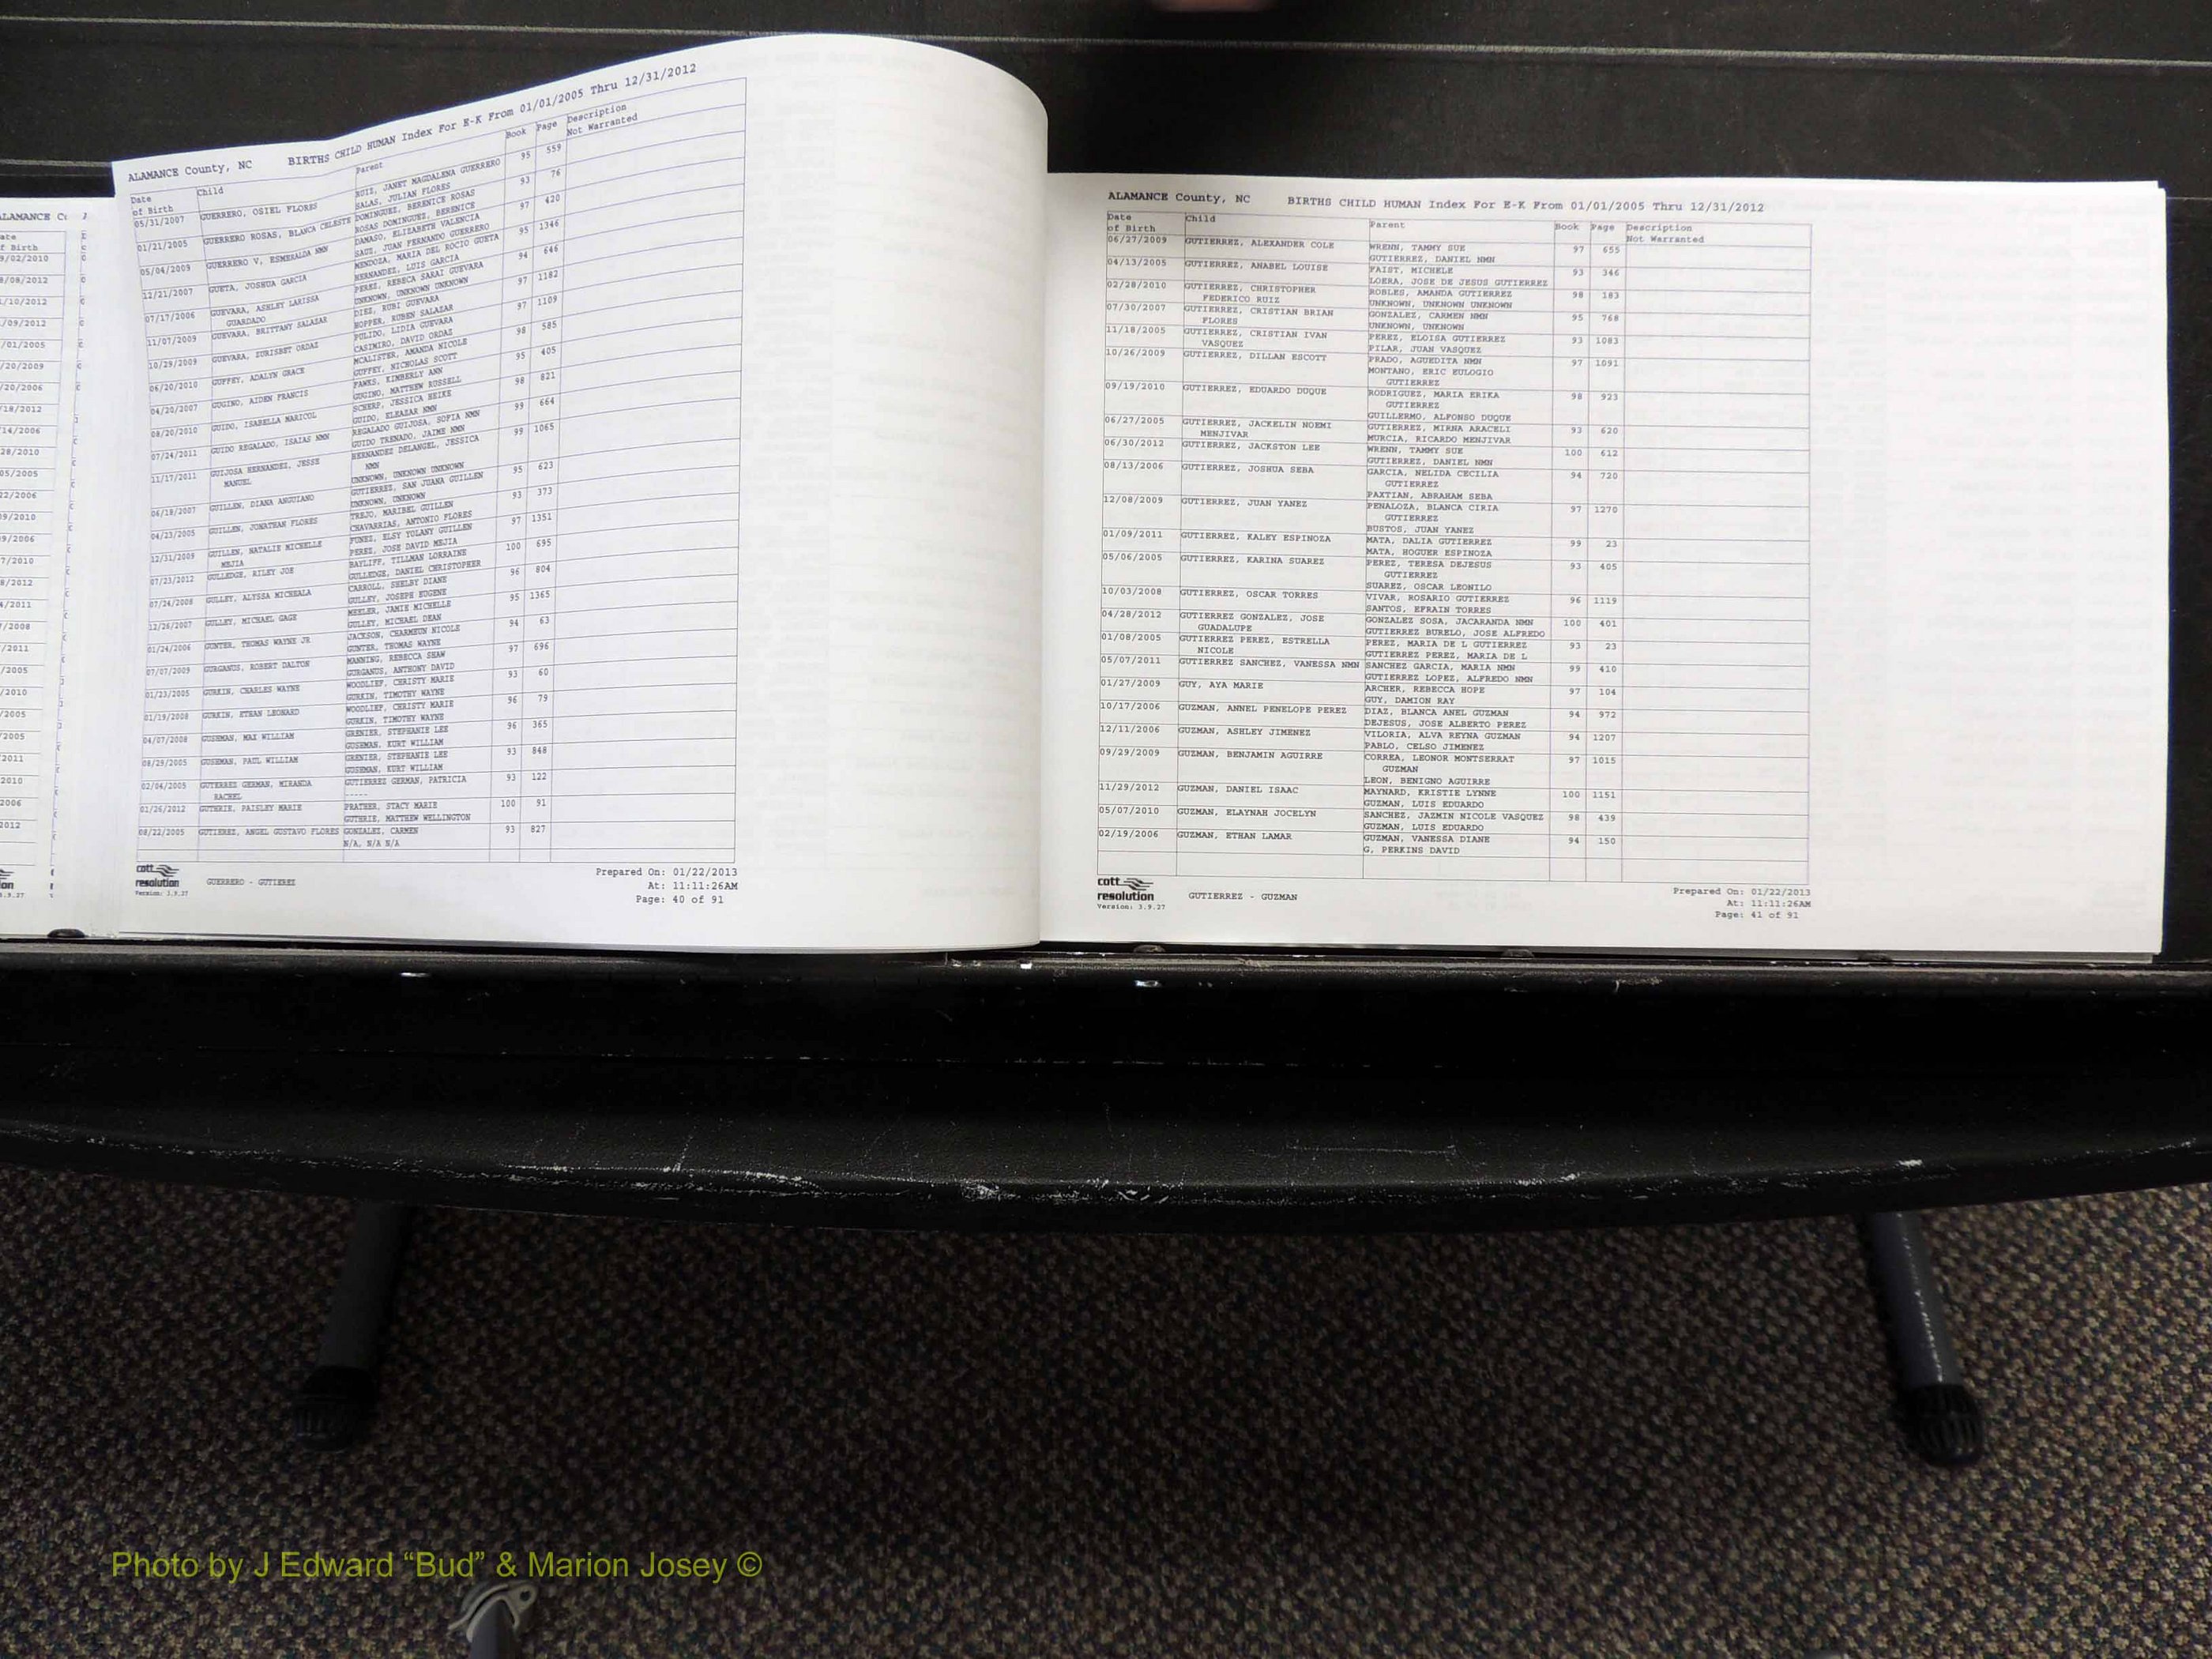 ALAMANCE County, NC BIRTHS CHILD HUMAN Index For E-K From 01/01/2005 Thru 12/31/2012
Date of Birth Child Parent Book Page Description Not Warranted
05/31/2007 GUERRERO, OSIEL FLORES RUIZ, JANET MAGDALENA GUERRERO 95 559
SALAS, JULIAN FLORES
01/21/2005 GUERRERO ROSAS, BLANCA CELESTE DOMINGUEZ, BERENICE ROSAS 93 76
ROSAS DOMINGUEZ, BERENICE
05/04/2009 GUERRERO V, ESMERALDA NMN DAMASO, ELIZABETH VALENCIA 97 420
SAUZ, JUAN FERNANDO GUERRERO
12/21/2007 GUETA, JOSHUA GARCIA MENDOZA, MARIA DEL ROCIO GUETA 95 1346
HERNANDEZ, LUIS GARCIA
07/17/2006 GUEVARA, ASHLEY LARISSA PEREZ, REBECA SARAI GUEVARA 94 646
GUARDADO UNKNOWN, UNKNOWN UNKNOWN
11/07/2009 GUEVARA, BRITTANY SALAZAR DIEZ, RUBI GUEVARA 97 1182
HOPPER, RUBEN SALAZAR
10/29/2009 GUEVARA, SURISBET ORDAZ PULIDO, LIDIA GUEVARA 97 1109
CASIMIRO, DAVID ORDAZ
06/20/2010 GUFFEY, ADALYN GRACE MCALISTER, AMANDA NICOLE 98 585
GUFFEY, NICHOLAS SCOTT
04/20/2007 GUGINO, AIDEN FRANCIS FAWKS, KIMBERLY ANN 95 405
GUGINO, MATTHEW RUSSELL
08/20/2010 GUIDO, ISABELLA MARICOL SCHERP, JESSICA HEIKE 98 821
GUIDO, ELEAZAR NMN
07/24/2011 GUIDO REGALADO, ISAIAS NMN REGALADO GUIJOSA, SOFIA NMN 99 664
GUIDO TRENADO, JAIME NMN
11/17/2011 GUIJOSA HERNANDEZ, JESSE HERNANDEZ DELANGEL, JESSICA 99 1065
MANUEL NMN
UNKNOWN, UNKNOWN UNKNOWN
06/18/2007 GUILLEN, DIANA ANGUIANO GUTIERREZ, SAN JUANA GUILLEN 95 623
UNKNOWN, UNKNOWN
04/23/2005 GUILLEN, JONATHAN FLORES TREJO, MARIBEL GUILLEN 93 373
CHAVARRIAS, ANTONIO FLORES
12/31/2009 GUILLEN, NATALIE MICHELLE FUNEZ, ELSY YOLANY GUILLEN 97 1351
MEJIA PEREZ, JOSE DAVID MEJIA
07/23/2012 GULLEDGE, RILEY JOE BAYLIFF, TILLMAN LORRAINE 100 695
GULLEDGE, DANIEL CHRISTOPHER
07/24/2008 GULLEY, ALYSSA MICHEALA CARROLL, SHELBY DIANE 96 804
GULLEY, JOSEPH EUGENE
12/26/2007 GULLEY, MICHAEL GAGE WHEELER, JAMIE MICHELLE 95 1365
GULLEY, MICHAEL DEAN
01/24/2006 GUNTER, THOMAS WAYNE JR JACKSON, CHARMEUN NICOLE 94 63
GUNTER, THOMAS WAYNE
07/07/2009 GURGANUS, ROBERT DALTON MANNING, REBECCA SHAW 97 696
GURGANUS, ANTHONY DAVID
01/23/2005 GURKIN, CHARLES WAYNE WOODLIEF, CHRISTY MARIE 93 60
GURKIN, TIMOTHY WAYNE
01/19/2008 GURKIN, ETHAN LEONARD WOODLIEF, CHRISTY MARIE 96 79
GURKIN, TIMOTHY WAYNE
04/07/2008 GUSHMAN, MAX WILLIAM GRENIER, STEPHANIE LEE 96 365
GUSHMAN, KURT WILLIAM
08/29/2005 GUSHMAN, PAUL WILLIAM GRENIER, STEPHANIE LEE 93 848
GUSHMAN, KURT WILLIAM
02/04/2005 GUTERREZ GERMAN, MIRANDA GUTIERREZ GERMAN, PATRICIA 93 122
RACHEL -----
01/26/2012 GUTHRIE, PAISLEY MARIE PRATHER, STACY MARIE 100 91
GUTHRIE, MATTHEW WELLINGTON
08/22/2005 GUTIEREZ, ANGEL GUSTAVO FLORES GONZALEZ, CARMEN 93 827
N/A, N/A N/A
cott resolution Version: 3.9.27 GUERRERO - GUTIEREZ
Prepared On: 01/22/2013
At: 11:11:26AM
Page: 40 of 91
ALAMANCE County, NC BIRTHS CHILD HUMAN Index For E-K From 01/01/2005 Thru 12/31/2012
Date of Birth Child Parent Book Page Description Not Warranted
06/27/2009 GUTIERREZ, ALEXANDER COLE WRENN, TAMMY SUE 97 655
GUTIERREZ, DANIEL NMN
04/13/2005 GUTIERREZ, ANABEL LOUISE FAIST, MICHELE 93 346
LOERA, JOSE DE JESUS GUTIERREZ
02/28/2010 GUTIERREZ, CHRISTOPHER ROBLES, AMANDA GUTIERREZ 98 183
FEDERICO RUIZ UNKNOWN, UNKNOWN UNKNOWN
07/30/2007 GUTIERREZ, CRISTIAN BRIAN GONZALEZ, CARMEN NMN 95 768
FLORES UNKNOWN, UNKNOWN
11/18/2005 GUTIERREZ, CRISTIAN IVAN PEREZ, ELOISA GUTIERREZ 93 1083
VASQUEZ PILAR, JUAN VASQUEZ
10/26/2009 GUTIERREZ, DILLAN ESCOTT PRADO, AGUEDITA NMN 97 1091
MONTANO, ERIC EULOGIO
GUTIERREZ
09/19/2010 GUTIERREZ, EDUARDO DUQUE RODRIGUEZ, MARIA ERIKA 98 923
GUTIERREZ
GUILLERMO, ALFONSO DUQUE
06/27/2005 GUTIERREZ, JACKELIN NOEMI GUTIERREZ, MIRNA ARACELI 93 620
MENJIVAR MURCIA, RICARDO MENJIVAR
06/30/2012 GUTIERREZ, JACKSTON LEE WRENN, TAMMY SUE 100 612
GUTIERREZ, DANIEL NMN
08/13/2006 GUTIERREZ, JOSHUA SEBA GARCIA, NELIDA CECILIA 94 720
GUTIERREZ
PAXTIAN, ABRAHAM SEBA
12/08/2009 GUTIERREZ, JUAN YANEZ PENALOZA, BLANCA CIRIA 97 1270
GUTIERREZ
BUSTOS, JUAN YANEZ
01/09/2011 GUTIERREZ, KALEY ESPINOZA MATA, DALIA GUTIERREZ 99 23
MATA, HOGUER ESPINOZA
05/06/2005 GUTIERREZ, KARINA SUAREZ PEREZ, TERESA DEJESUS 93 405
GUTIERREZ
SUAREZ, OSCAR LEONILO
10/03/2008 GUTIERREZ, OSCAR TORRES VIVAR, ROSARIO GUTIERREZ 96 1119
SANTOS, EFRAIN TORRES
04/28/2012 GUTIERREZ GONZALEZ, JOSE GONZALEZ SOSA, JACARANDA NMN 100 401
GUADALUPE GUTIERREZ BURELO, JOSE ALFREDO
01/08/2005 GUTIERREZ PEREZ, ESTRELLA PEREZ, MARIA DE L GUTIERREZ 93 23
NICOLE GUTIERREZ PEREZ, MARIA DE L
05/07/2011 GUTIERREZ SANCHEZ, VANESSA NMN SANCHEZ GARCIA, MARIA NMN 99 410
GUTIERREZ LOPEZ, ALFREDO NMN
01/27/2009 GUY, AYA MARIE ARCHER, REBECCA HOPE 97 104
GUY, DAMION RAY
10/17/2006 GUZMAN, ANNEL PENELOPE PEREZ DIAZ, BLANCA ANEL GUZMAN 94 972
DEJESUS, JOSE ALBERTO PEREZ
12/11/2006 GUZMAN, ASHLEY JIMENEZ VILORIA, ALVA REYNA GUZMAN 94 1207
PABLO, CELSO JIMENEZ
09/29/2009 GUZMAN, BENJAMIN AGUIRRE CORREA, LEONOR MONTSERRAT 97 1015
GUZMAN
LEON, BENIGNO AGUIRRE
11/29/2012 GUZMAN, DANIEL ISAAC MAYNARD, KRISTIE LYNNE 100 1151
GUZMAN, LUIS EDUARDO
05/07/2010 GUZMAN, ELAYNAH JOCELYN SANCHEZ, JAZMIN NICOLE VASQUEZ 98 439
GUZMAN, LUIS EDUARDO
02/19/2006 GUZMAN, ETHAN LAMAR GUZMAN, VANESSA DIANE 94 150
G, PERKINS DAVID
cott resolution Version: 3.9.27 GUTIERREZ - GUZMAN
Prepared On: 01/22/2013
At: 11:11:26AM
Page: 41 of 91
Photo by J Edward “Bud” & Marion Josey ©